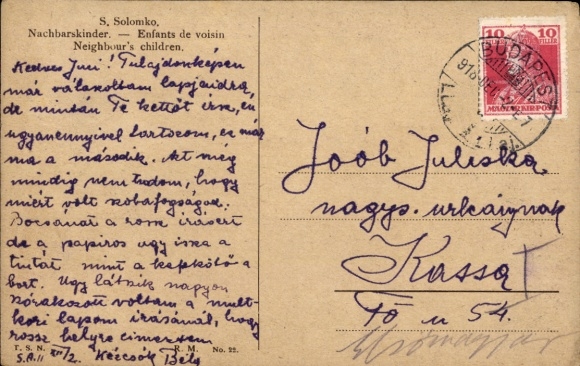 S. Solomko.
Nachbarskinder. — Enfants de voisin
Neighbour's children.
Kedves Juci! Tulajdonképen
már válaszoltam lapjaidra,
de miután Te kettőt írsz, én
ugyanennyivel tartozom, ez már
ma a második. Azt még
mindig nem tudom, hogy
miért volt szobafogságod.
Bocsánat a rossz írásért
de a papiros úgy issza a
tintát mint a kapkötő a
bort. Úgy látszik nagyon
szórakozott voltam a mult-
kori lapom írásánál, hogy
rossz helyre címeztem
Kézcsók Béla
T. S. N. R. M. No. 22.
S.A.II XII/2.
10 10
MAGYAR KIR. POSTA
BUDAPEST
918
Joób Juliska
nagys. urleánynak
Kassa
Fő u 54.